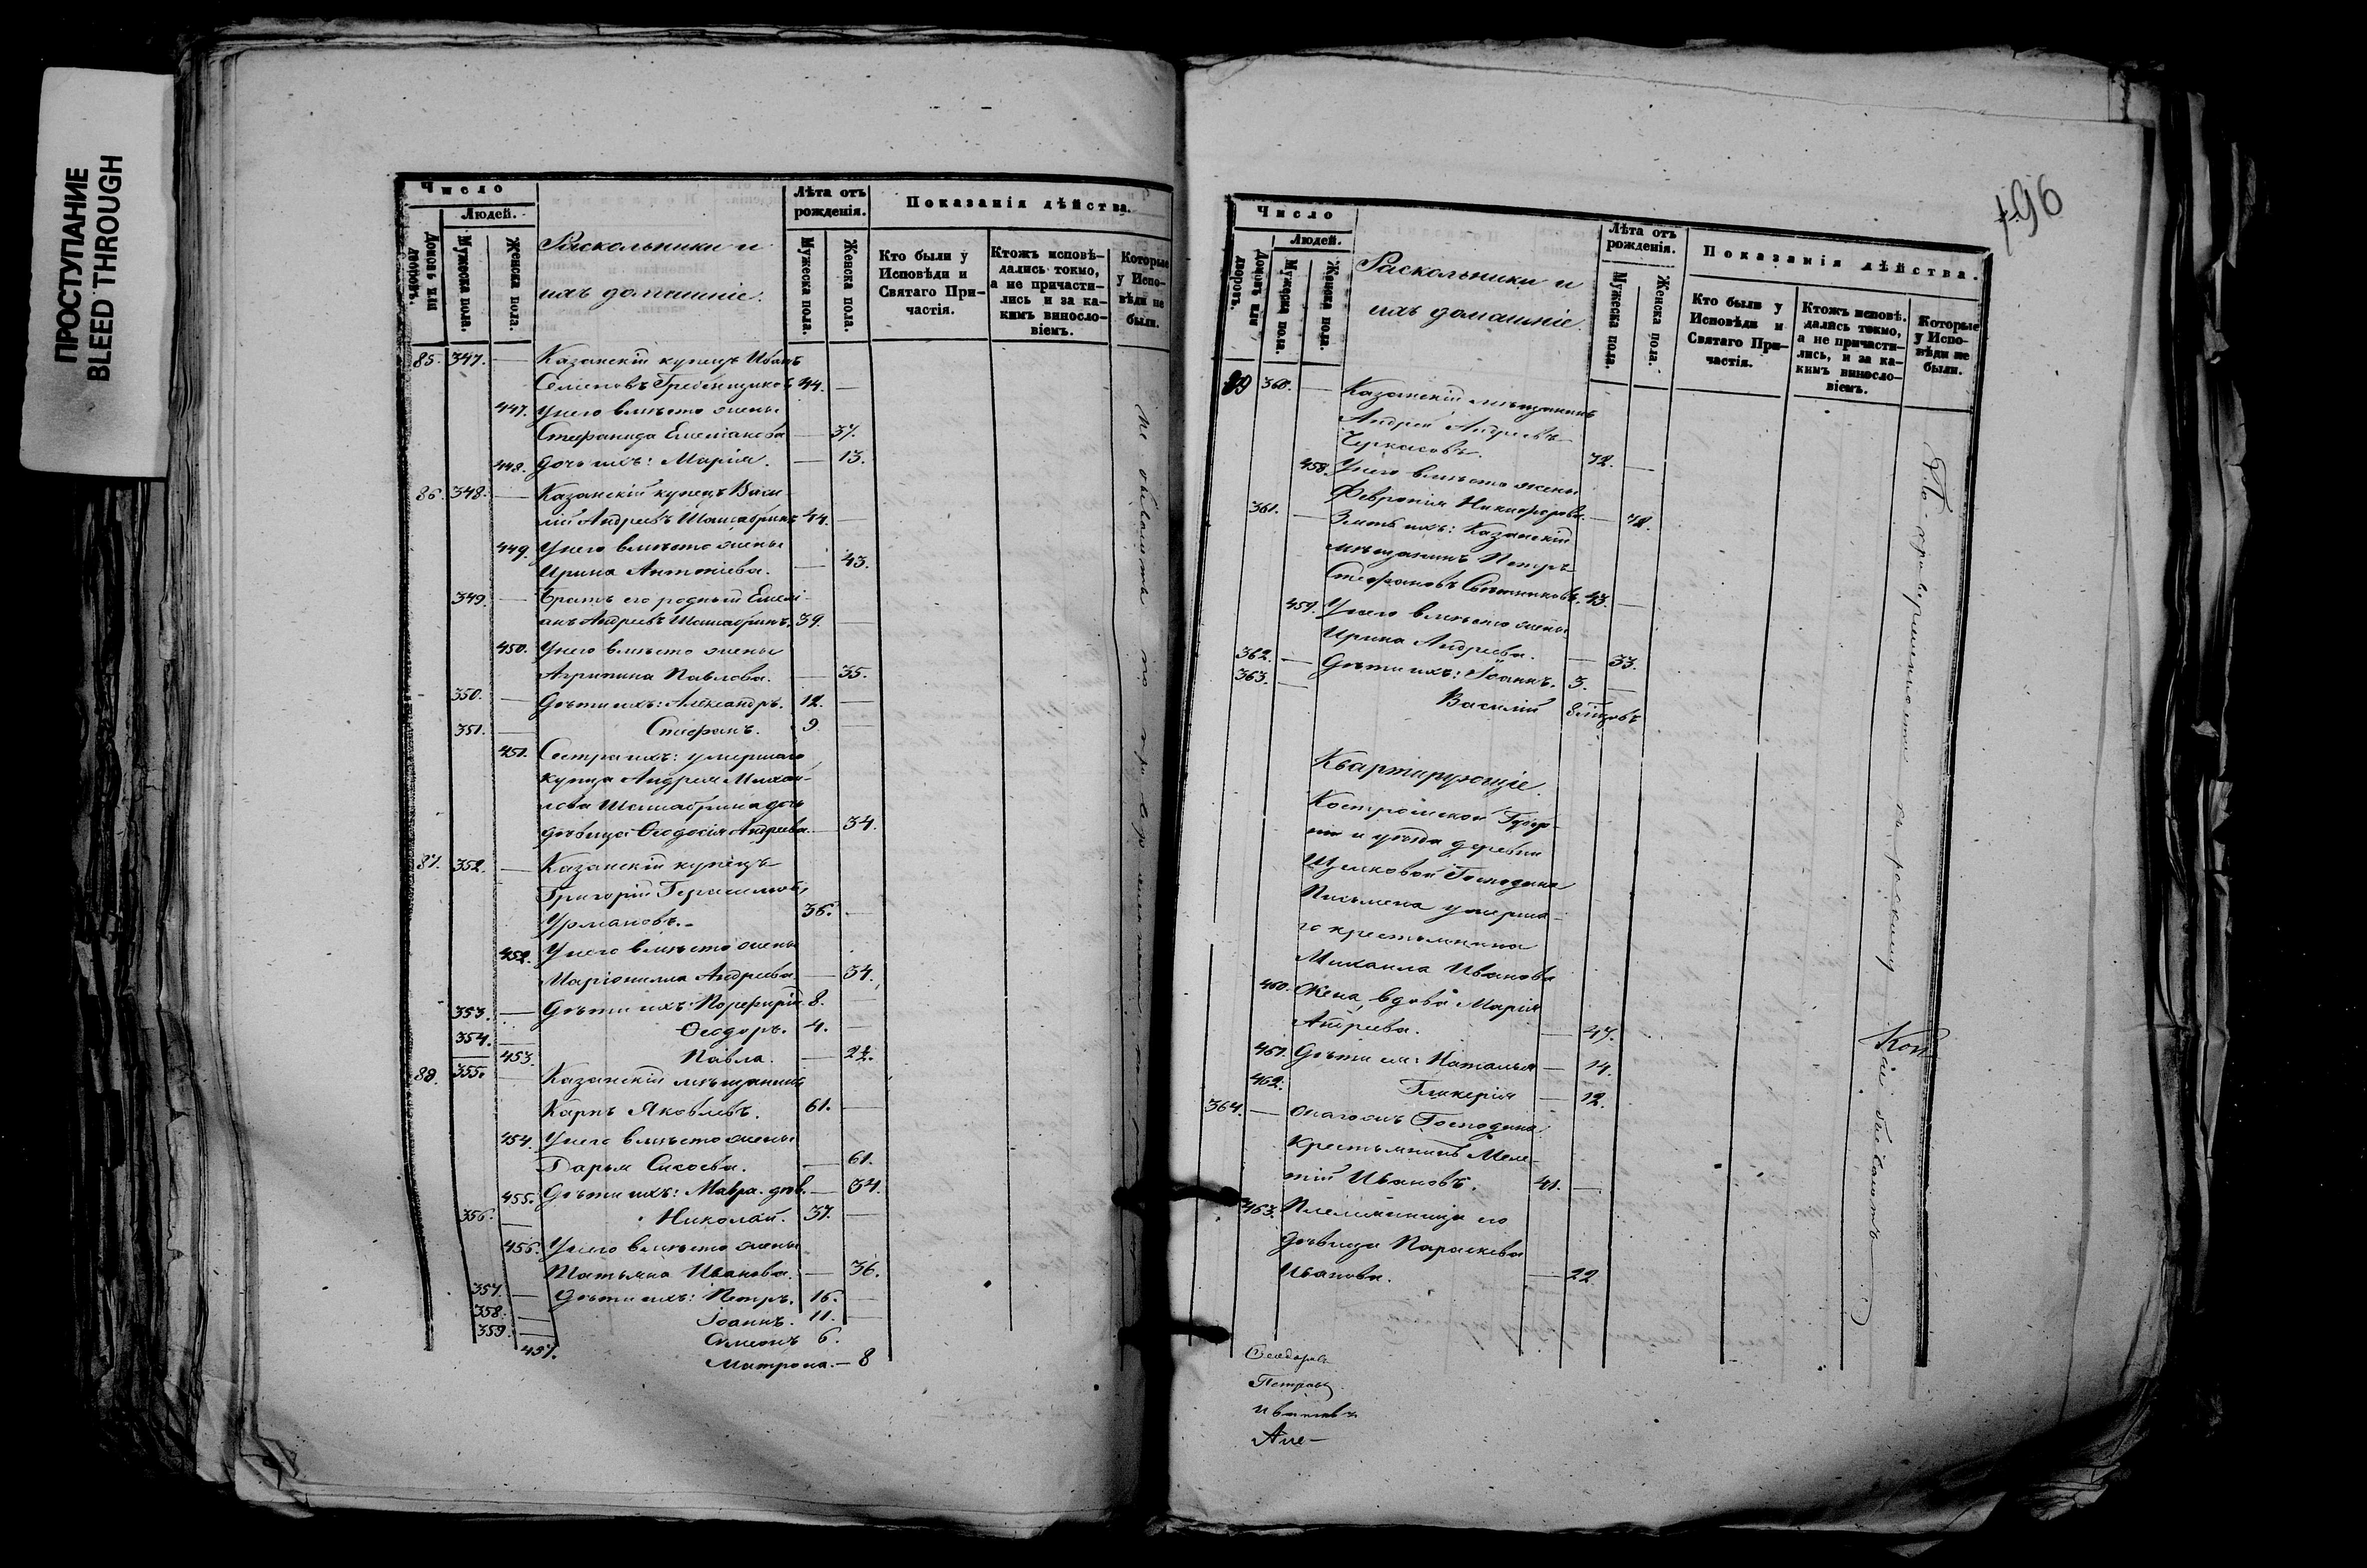 ПРОСТУПАНИЕ
BLEED THROUGH
Число
Людей.
Домовъ или дворовъ.
Мужеска пола.
Женска пола.
Раскольники и
ихъ домашніе.
Лѣта отъ
рожденія.
Мужеска пола.
Женска пола.
Показанія дѣйства.
Кто были у
Исповѣди и
Святаго При-
частія.
Ктожъ исповѣ-
дались токмо,
а не причасти-
лись и за ка-
кимъ винословіемъ.
Которые
у Испо-
вѣди не
были.
85. 347. — Казанскій купецъ Иванъ
Семеновъ Гребенщиковъ 44. —
447. У него вмѣсто жены
Стефанида Емеліанова — 37.
448. Дочь ихъ: Марія. — 13.
86. 348. — Казанскій купецъ Васи-
лій Андреевъ Шашабринъ 44. —
449. У него вмѣсто жены
Ирина Антоніева. — 43.
349. — Братъ его родный Емелі-
анъ Андреевъ Шашабринъ. 39. —
450. У него вмѣсто жены
Агрипина Павлова. — 35.
350. — Дѣти ихъ: Александръ. 12. —
351. — Стефанъ. 9. —
451. Сестра ихъ: умершаго
купца Андрея Михаи-
лова Шашабрина дочь
дѣвица Ѳеодосія Андреева — 34.
87. 352. — Казанскій купецъ
Григорій Герасимовъ
Урмановъ. 36. —
452. У него вмѣсто жены
Маріонилла Андреева — 34.
353. — Дѣти ихъ: Порфирій 8. —
354. — Ѳеодоръ. 4. —
453. Павла. — 2½.
88. 355. — Казанскій мѣщанинъ
Карпъ Яковлевъ. 61. —
454. У него вмѣсто жены
Дарья Сысоева. — 61.
455. Дѣти ихъ: Мавра дѣв. — 34.
356. — Николай. 37. —
456. У него вмѣсто жены
Татьяна Иванова. — 36.
357. — Дѣти ихъ: Петръ. 16. —
358. — Іоаннъ. 11. —
359. — Симеонъ 6.
457. Матрона. — 8
Не бываютъ по приверженности
496
Число
Людей.
Домовъ или дворовъ.
Мужеска пола.
Женска пола.
Раскольники и
ихъ домашніе.
Лѣта отъ
рожденія.
Мужеска пола.
Женска пола.
Показанія дѣйства.
Кто были у
Исповѣди и
Святаго При-
частія.
Ктожъ исповѣ-
дались токмо,
а не причасти-
лись, и за ка-
кимъ винословіемъ.
Которые
у Испо-
вѣди не
были.
89 360. — Казанскій мѣщанинъ
Андрей Андреевъ
Черкасовъ. 72. —
458. У него вмѣсто жены
Февронія Никифорова. — 72.
361. — Зять ихъ: Казанскій
мѣщанинъ Петръ
Стефановъ 43. —
459. У него вмѣсто жены
Ирина Андреева. — 33.
362. — Дѣти ихъ: Іоаннъ. 3. —
363. — Василій
Квартирующіе.
Костромской Губер-
ніи и уѣзда деревни
Щелковой Господина
умерша-
го крестьянина
Михаила Иванова
460. Жена, вдова Марія
Андреева. — 47.
461. Дѣти ея: Наталья — 14.
462. Гликерія — 12.
364. — Онагожъ Господина
Крестьянинъ Меле-
тій Ивановъ. 41. —
463. Племянница его
дѣвица Параскева
Иванова. — 22
По приверженности къ расколу не бываютъ
Ѳеодоровъ
Петровъ
Ивановъ
Але-